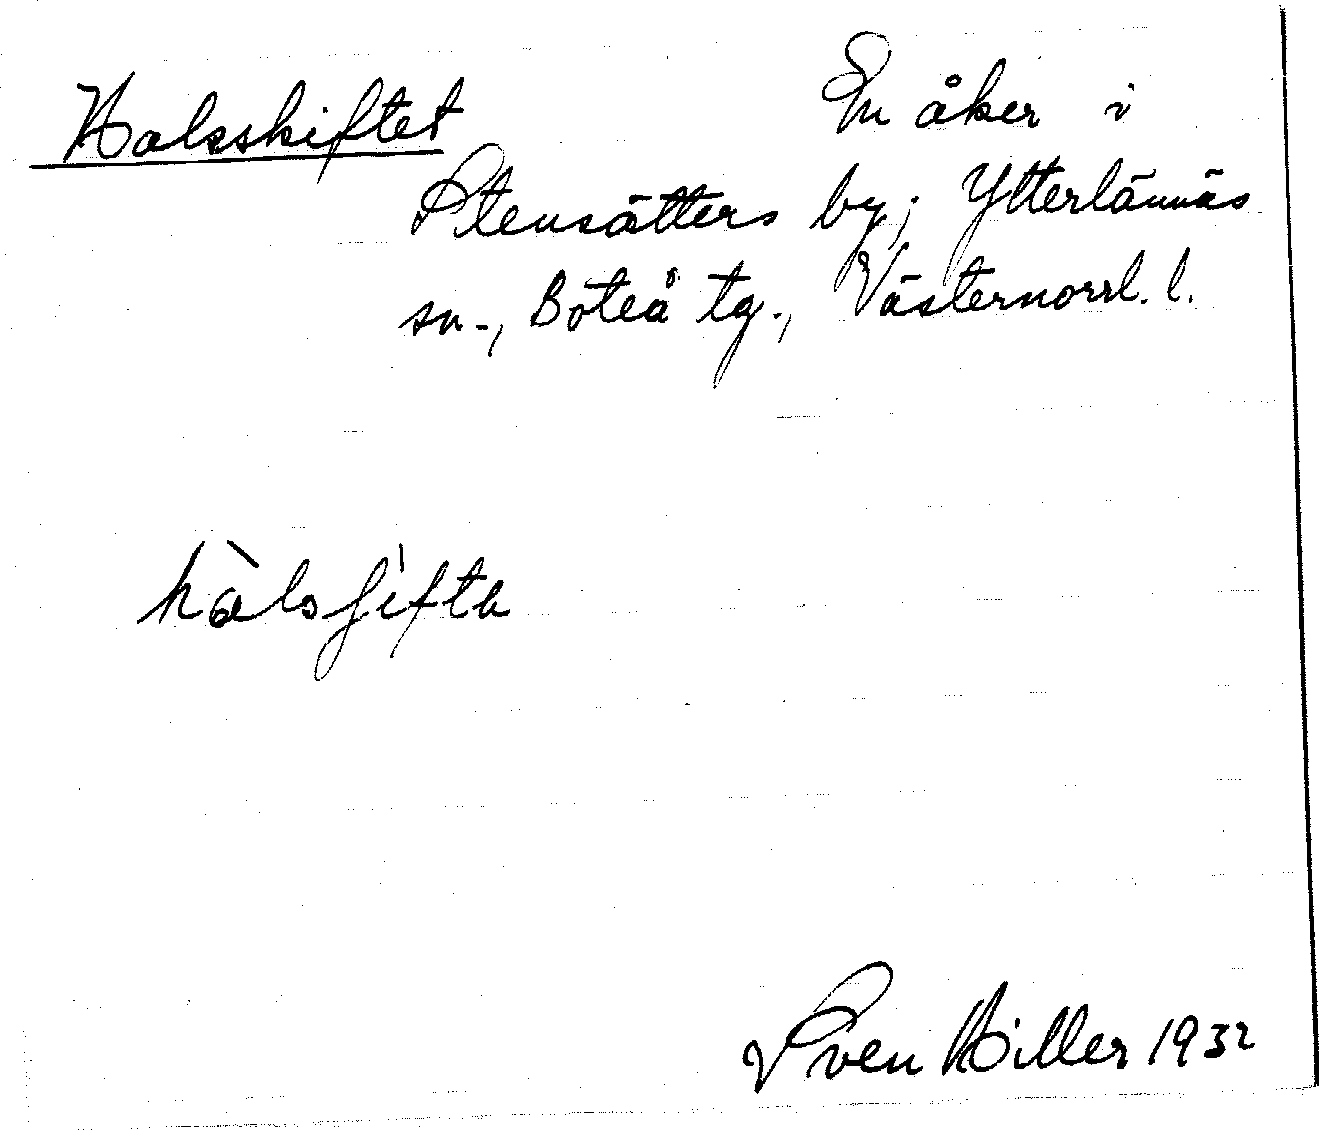 Halsskiftet
En åker i
Stensätters by; Ytterlännäs
sn., Boteå tg., Västernorrl. l.
hàlsʃìfta
Sven Hiller 1932